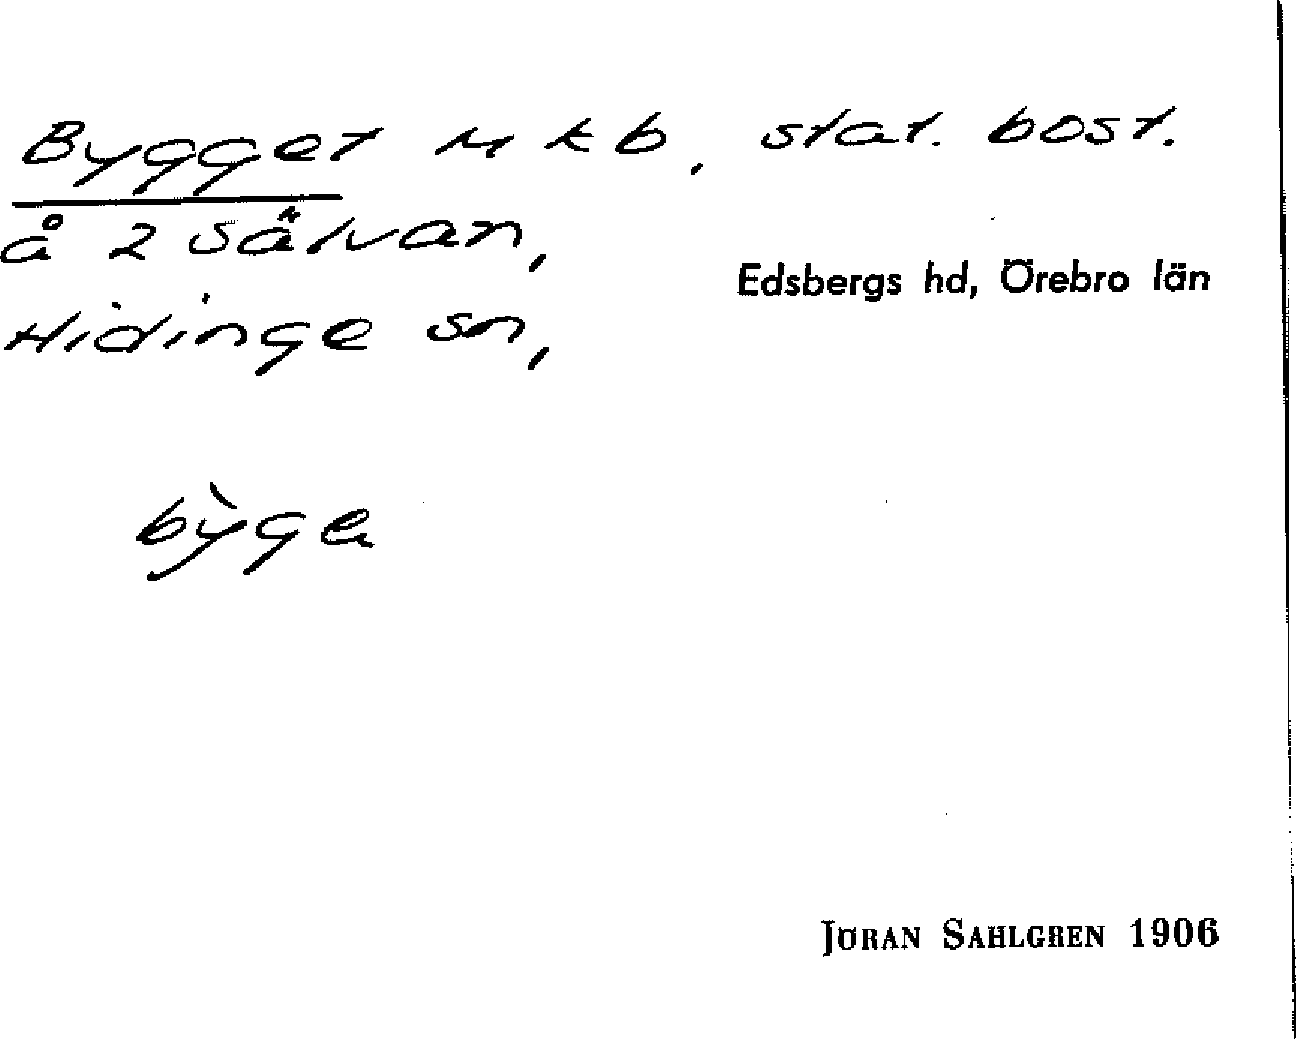 Bygget M k b, stat. bost.
å 2 Sälvan,
Edsbergs hd, Örebro län
Hidinge sn,
bỳge
JÖRAN SAHLGREN 1906